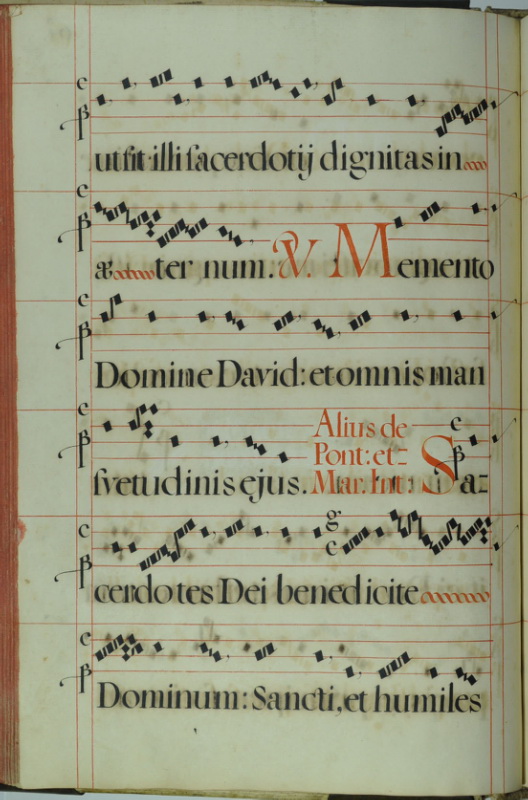 ut sit illi sacerdotij dignitas in
æter num. V. Memento
Domine David: et omnis man
svetudinis ejus. Alius de
Pont: et=
Mar. Int: Sa=
cerdotes Dei benedicite
Dominum: Sancti, et humiles